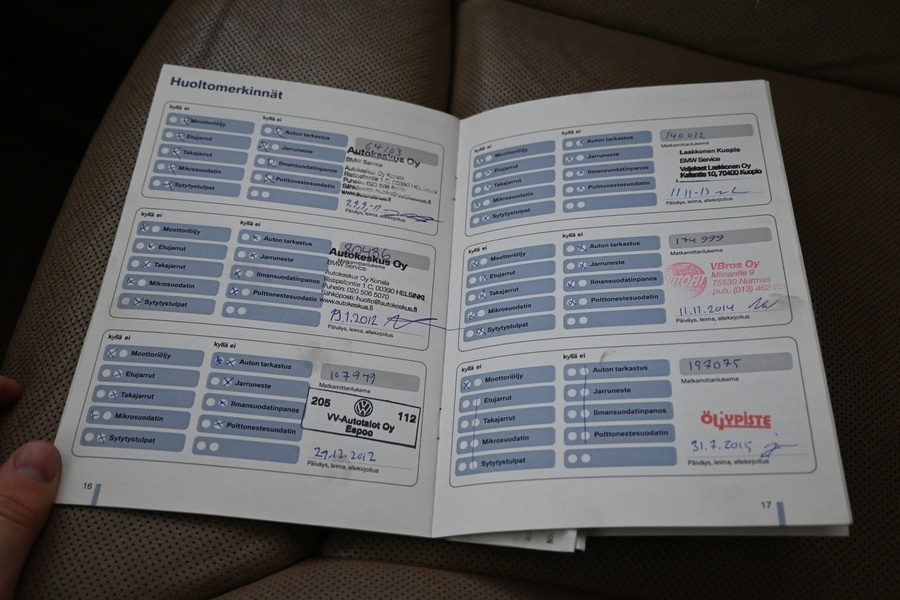 Huoltomerkinnät
kyllä ei
kyllä ei
Moottoriöljy
Auton tarkastus
Etujarrut
Jarruneste
Takajarrut
Ilmansuodatinpanos
Mikrosuodatin
Polttonestesuodatin
Sytytystulpat
64103
Autokeskus Oy
BMW Service
Autokeskus Oy Konala
Ristipellontie 1 C, 00390 HELSINKI
Puhelin: 020 506 5070
www.autokeskus.fi
Päiväys, leima, allekirjoitus
kyllä ei
kyllä ei
Moottoriöljy
Auton tarkastus
Etujarrut
Jarruneste
Takajarrut
Ilmansuodatinpanos
Mikrosuodatin
Polttonestesuodatin
Sytytystulpat
80486
Matkamittarilukema
Autokeskus Oy
BMW Service
Autokeskus Oy Konala
Ristipellontie 1 C, 00390 HELSINKI
Puhelin: 020 506 5070
Sähköposti: huolto@autokeskus.fi
www.autokeskus.fi
19.1.2012
Päiväys, leima, allekirjoitus
kyllä ei
kyllä ei
Moottoriöljy
Auton tarkastus
Etujarrut
Jarruneste
Takajarrut
Ilmansuodatinpanos
Mikrosuodatin
Polttonestesuodatin
Sytytystulpat
107979
Matkamittarilukema
205 112
VV-Autotalot Oy
Espoo
29.12.2012
Päiväys, leima, allekirjoitus
16
kyllä ei
kyllä ei
Moottoriöljy
Auton tarkastus
Etujarrut
Jarruneste
Takajarrut
Ilmansuodatinpanos
Mikrosuodatin
Polttonestesuodatin
Sytytystulpat
140012
Matkamittarilukema
Laakkonen Kuopio
BMW Service
Veljekset Laakkonen Oy
Kallantie 10, 70400 Kuopio
11.11-13
Päiväys, leima, allekirjoitus
kyllä ei
kyllä ei
Moottoriöljy
Auton tarkastus
Etujarrut
Jarruneste
Takajarrut
Ilmansuodatinpanos
Mikrosuodatin
Polttonestesuodatin
Sytytystulpat
174 999
Matkamittarilukema
VBros Oy
Miinantie 9
75530 Nurmes
puh. (013) 462 02
11.11.2014
Päiväys, leima, allekirjoitus
kyllä ei
kyllä ei
Moottoriöljy
Auton tarkastus
Etujarrut
Jarruneste
Takajarrut
Ilmansuodatinpanos
Mikrosuodatin
Polttonestesuodatin
Sytytystulpat
197075
Matkamittarilukema
ÖLJYPISTE
31.7.2015
Päiväys, leima, allekirjoitus
17